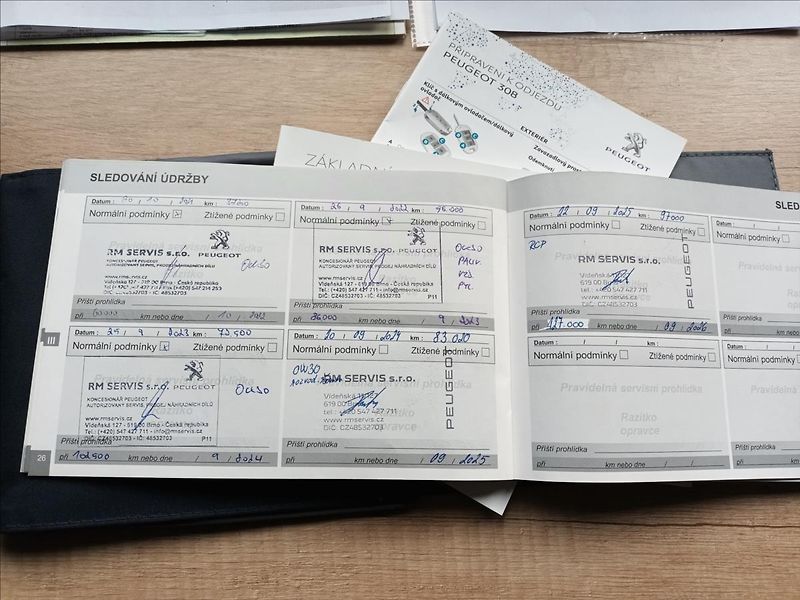 PŘIPRAVENI K ODJEZDU
PEUGEOT 308
Klíč s dálkovým ovladačem/dálkový
ovladač
EXTERIÉR
PEUGEOT
ZÁKLADNÍ
SLEDOVÁNÍ ÚDRŽBY
SLED
Datum : / 10 / km :
Normální podmínky Ztížené podmínky
RM SERVIS s.r.o. PEUGEOT
KONCESIONÁŘ PEUGEOT
AUTORIZOVANÝ SERVIS, PRODEJ NÁHRADNÍCH DÍLŮ
www.rmservis.cz
Vídeňská 127 - 619 00 Brno - Česká republika
DIČ: CZ48532703 - IČ: 48532703
OW30
Příští prohlídka
při km nebo dne / 10 /
Datum : 26 / 9 / 2022 km :
Normální podmínky Ztížené podmínky
RM SERVIS s.r.o. PEUGEOT
KONCESIONÁŘ PEUGEOT
AUTORIZOVANÝ SERVIS, PRODEJ NÁHRADNÍCH DÍLŮ
www.rmservis.cz
Vídeňská 127 - 619 00 Brno - Česká republika
Tel.: (+420) 547 427 711 - info@rmservis.cz
DIČ: CZ48532703 - IČ: 48532703 P11
OW30
Příští prohlídka
při km nebo dne / 9 / 2023
Datum : 22 / 09 / 2025 km : 97000
Normální podmínky Ztížené podmínky
RCP
RM SERVIS s.r.o.
Vídeňská 127
619 00
547 427 711
DIČ: CZ48532703
PEUGEOT
Příští prohlídka
při 127.000 km nebo dne / 09 / 2026
Datum :
Normální podmínky
Pravidelná
Příští prohlídka
při
III
Datum : 25 / 9 / 2023 km : 72500
Normální podmínky Ztížené podmínky
RM SERVIS s.r.o. PEUGEOT
KONCESIONÁŘ PEUGEOT
AUTORIZOVANÝ SERVIS, PRODEJ NÁHRADNÍCH DÍLŮ
www.rmservis.cz
Vídeňská 127 - 619 00 Brno - Česká republika
Tel.: (+420) 547 427 711 - info@rmservis.cz
DIČ: CZ48532703 - IČ: 48532703 P11
OW30
Příští prohlídka
při 102500 km nebo dne / 9 / 2024
Datum : 20 / 09 / 2024 km : 83.020
Normální podmínky Ztížené podmínky
OW30
RM SERVIS s.r.o.
Vídeňská 127
619 00
tel.: 547 427 711
www.rmservis.cz
DIČ: CZ48532703
PEUGEOT
Příští prohlídka
při km nebo dne / 09 / 2025
Datum : / / km :
Normální podmínky Ztížené podmínky
Pravidelná servisní prohlídka
Razítko
opravce
Příští prohlídka
při km nebo dne / /
Datum :
Normální podmínky
Pravidelná
Příští prohlídka
při
26